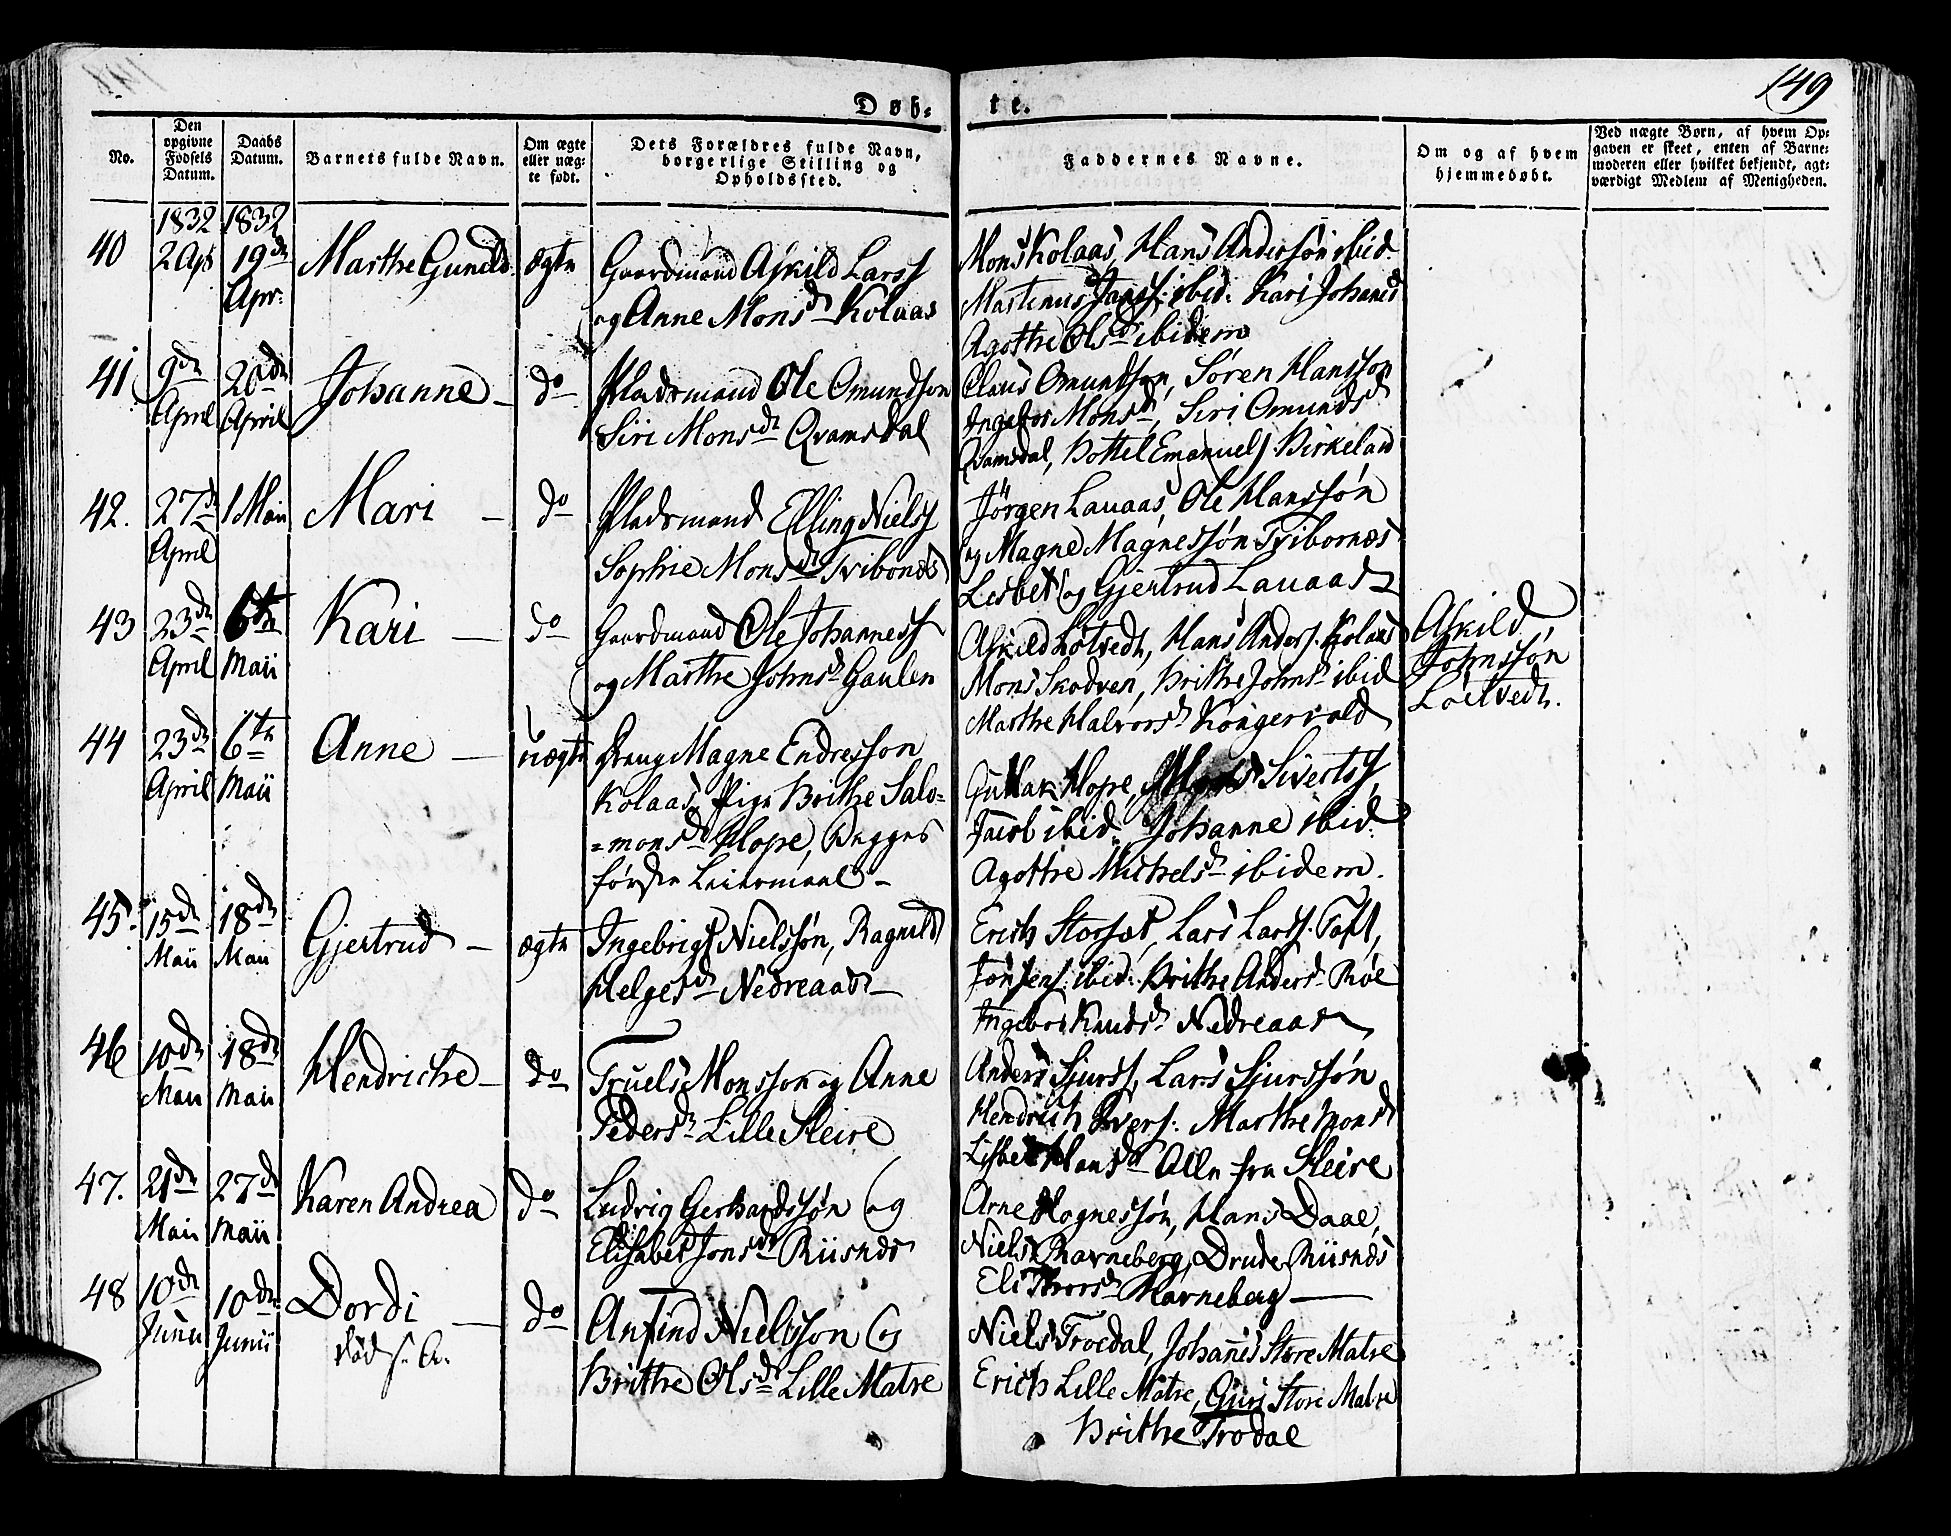 149
Døb-
te.
No.
Den opgivne Fødsels Datum.
Daabs Datum.
Barnets fulde Navn.
Om ægte eller uæg-te født.
Dets Forældres fulde Navn, borgerlige Stilling og Opholdssted.
Faddernes Navne.
Om og af hvem hjemmedøbt.
Ved uægte Børn, af hvem Op-gaven er skeet, enten af Barne-moderen eller hvilket bekjendt, agt-værdigt Medlem af Menigheden.
1832 1832
40 2 Apr 19de Apr: Marthe Gunild ægte
Gaardmand Askild Larss
og Anne Monsd Kolaas
Mons Kolaas, Hans Anderssøn ibid.
Martinus ibid: Kari Johansd
Agothe Olsd ibidem
41 9de April 20de April Johanne do
Pladsmand Ole Omundson
Siri Monsd Qvamsdal
Claus Omundson, Søren Hansson
Ingebor Monsd, Siri Omundsd
Qvamsdal, Bottel Emanuels Birkeland
42. 27de April 1 Maii Mari do
Pladsmand Elling Nielss
Sophie Monsd Tvibornæs
Jørgen Lauaas, Ole Hanssøn
og Magne Magnessøn Tvibornæs
Lisbet og Gjertrud Lauaas
43 23de April 6te Maii Kari do
Gaardmand Ole Johanness
og Marthe Johnsd Gaulen
Askild Løtvedt, Hans Anders. Kolaas
Mons Skodven, Brithe Johnsd ibid
Marthe Halvorsd Kongervold
Askild
Johnssøn
Løetvedt.
44 23de April 6te Maii Anne uægte
Dreng Magne Endresson
Kolaas, Pige Brithe Salo=
=monsd Hope, Begges
første Leiermaal
Hope, Sivertss,
Jacob ibid. Johanne ibid.
Agothe Michelsd ibidem.
45. 15de Maii 18de Maii Gjertrud ægte
Ingebrigt Nielssøn, Ragnild
Helgesd Nedreaas
Erich Storsæt, Lars Larss. Toft,
ibid: Brithe Andersd Røe
Ingebor Knudsd Nedreaas
46 10de Maii 18de Maii Hendriche do
Truels Monsson og Anne
Pedersd Lille Sleire
Anders Sjurss, Lars Sjurssøn
Hendrich Ivers. Marthe Monsd
Lisbet Hansd Alle fra Sleire
47. 21de Maii 27de Maii Karen Andrea do
Ludvig Gerhardssøn og
Elisabet Jonsd Riisnæs
Arne Hognessøn, Hans Daae,
Niels Barneberg, Drude Riisnæs
Eli Thorsd Barneberg
48 10de Junii 10de Junii Dordi do
død s. A.
Anfind Nielsson og
Brithe Olsd Lille Matre
Niels Troedal, Johanes Store Matre
Erich Lille Matre, Guri Store Matre
Brithe Trodal